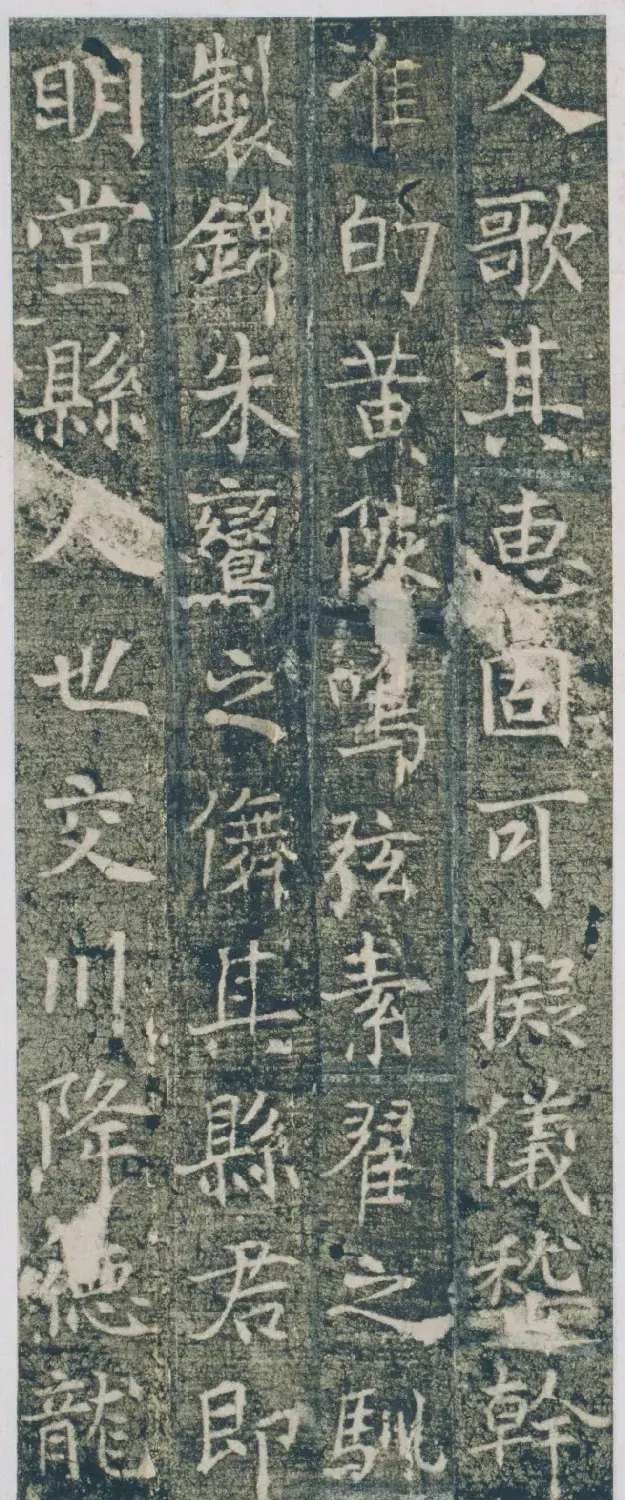 人歌其惠固可擬儀嵇幹
准的黄陂鳴弦素翟之馴
製錦朱鸞之儛其縣君即
明堂縣人也交川降德龍